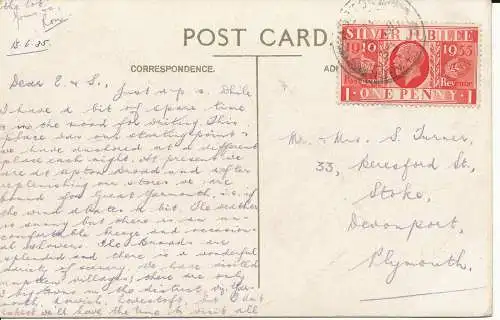 the lot.
Yours as,
Ron
15.6.35.
POST CARD.
CORRESPONDENCE.
SILVER JUBILEE
1910 1935
1 ONE PENNY 1
Dear E. & S., Just a p.c. while
I have a bit of spare time
& in the mood for writing. This
place was our starting point &
we have anchored at a different
place each night. At present we
are at Upton Broad and after
replenishing our stores we are
bound for Great Yarmouth i.e. if
the wind abates a bit. The weather
is sunny but there is an un-
comfortable breeze and occasion-
al showers. The Broads are
splendid and there is a wonderful
variety of scenery. We have visited
umpteen villages; there are only
3 big towns in the district, viz. Yar-
mouth, Norwich, Lowestoft, but I don't
expect we'll have the time to visit all
Mr. & Mrs. S. Turner,
33, Beresford St.,
Stoke,
Devonport,
Plymouth.